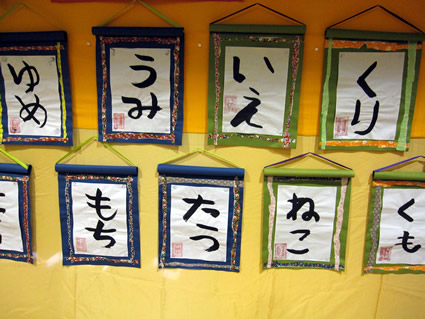 ゆめ
うみ
いえ
くり
もち
たつ
ねこ
くも